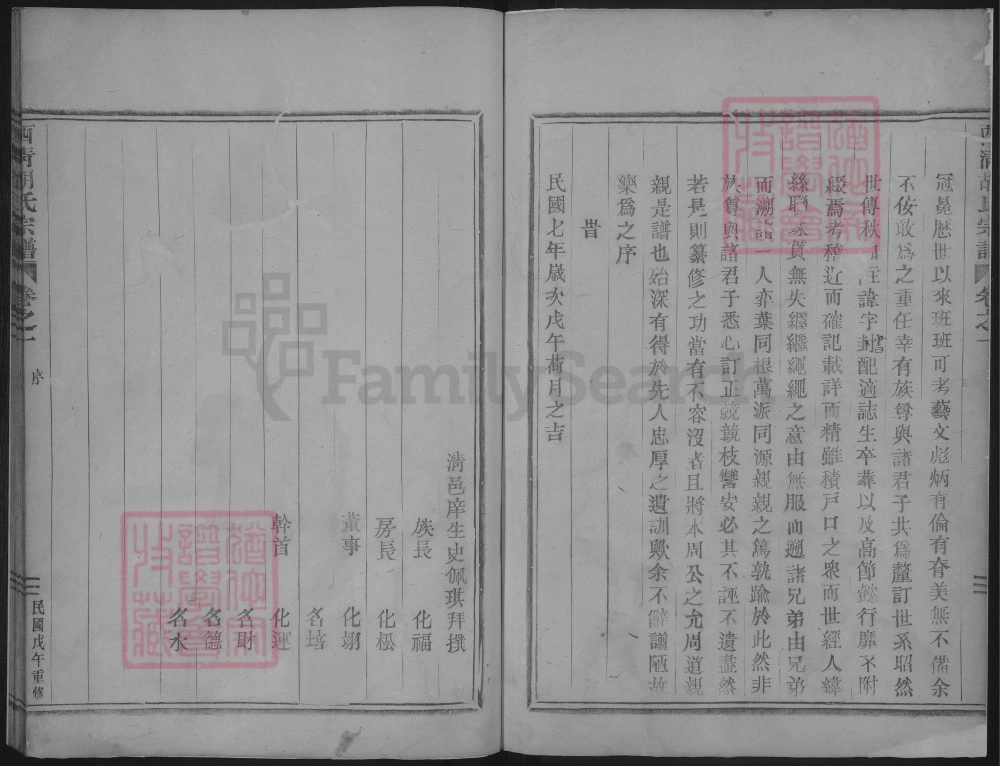 冠冕歷世以來班班可考藝文彪炳有倫有脊美無不備余
不佞敢爲之重任幸有族尊與諸君子共爲釐訂世系昭然
世傳秋諱字封配適誌生卒葬以及高節懿行靡不附
綴焉考稽近而確記載詳而精雖積戶口之衆而世經人緯
絲聯珠貫無失繼繼繩繩之意由無服而遡諸兄弟由兄弟
而溯諸一人亦葉同根萬派同源親親之篤孰踰於此然非
族尊與諸君子悉心訂正兢兢枝讐安必其不誣不遺盡然
若是則纂修之功當有不容沒者且將本周公之尤周道親
親是譜也殆深有得於先人忠厚之遺訓歟余不辭譾陋故
樂爲之序
旹
民國七年歲次戊午荷月之吉
清邑庠生史佩琪拜撰
族長 化福
房長 化松
董事 化翊
名培
幹首 化運
名財
名德
名水
西清胡氏宗譜 卷之一 序 民國戊午重修
FamilySearch